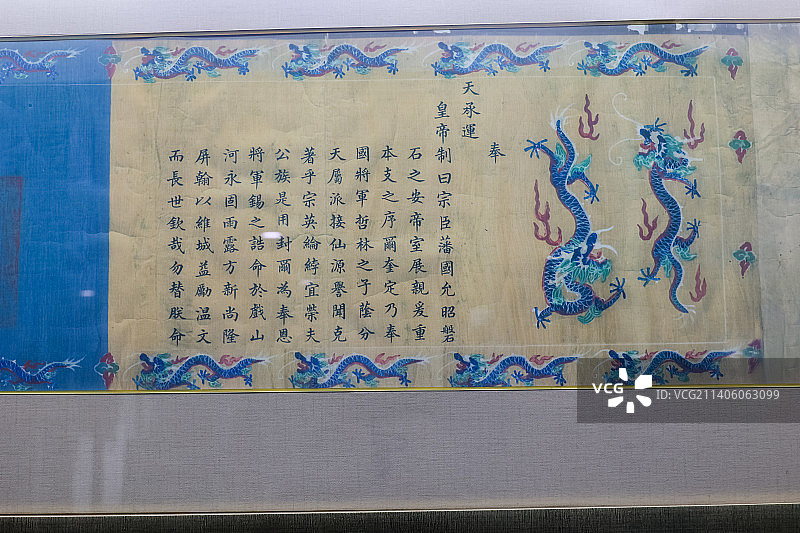 奉
天承運
皇帝制曰宗臣藩國允昭磐
石之安帝室展親爰重
本支之序爾奎定乃奉
國將軍哲林之子蔭分
天屬派接仙源譽聞克
著乎宗英綸綍宜榮夫
公族是用封爾為奉恩
將軍錫之誥命於戲山
河永固雨露方新尚隆
屏翰以維城益勵溫文
而長世欽哉勿替朕命
VCG
VCG211406063099